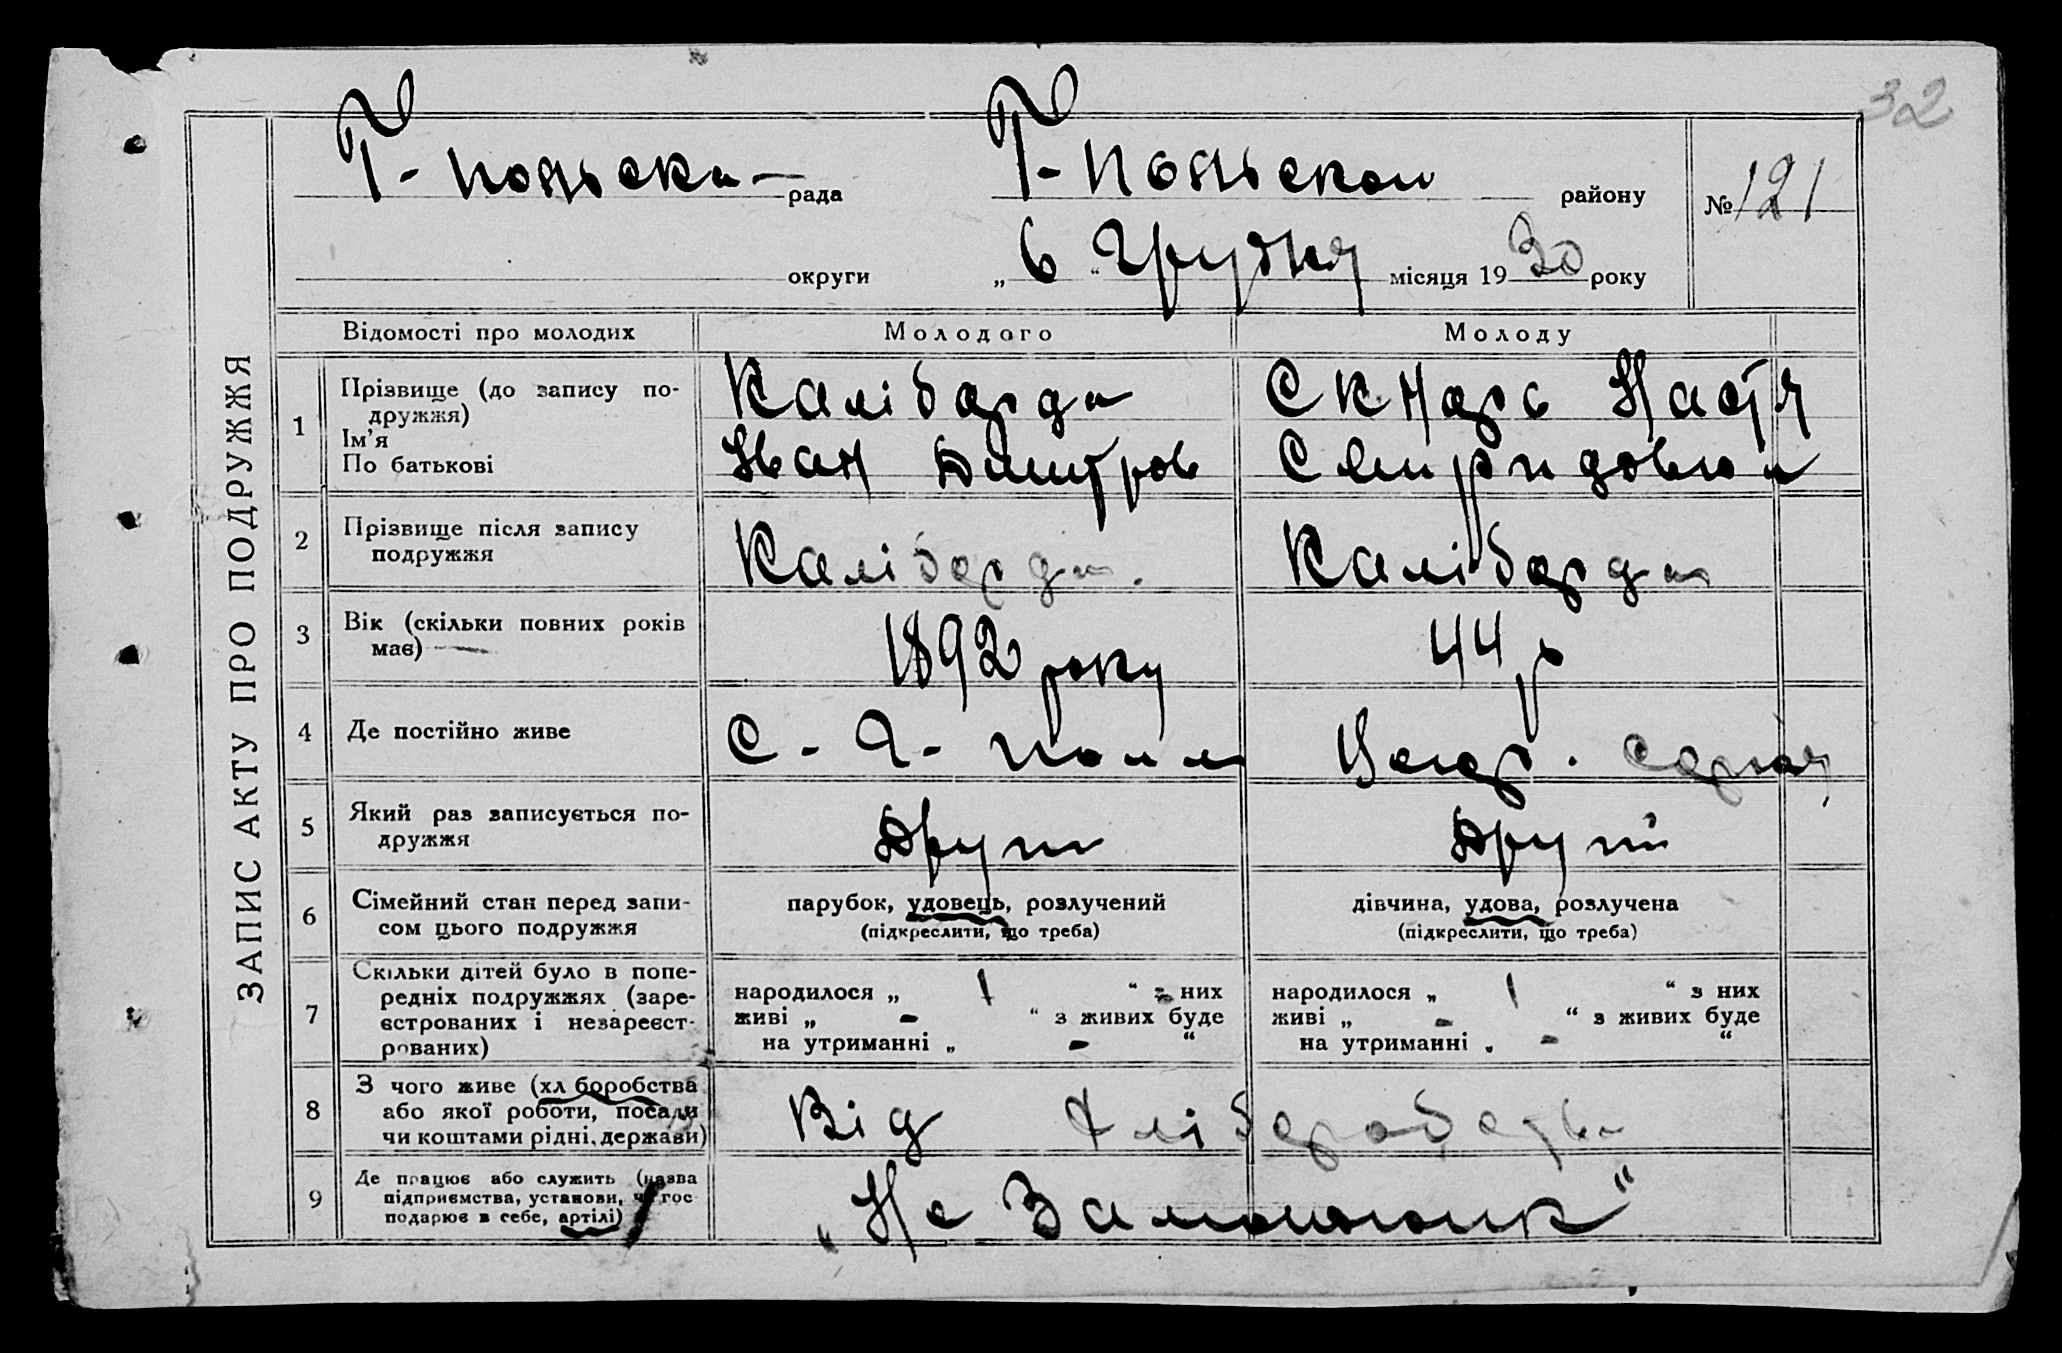 32
Г-Польска рада Г-Польског району № 121
округи „ 6 “ Грудня місяця 1930 року
ЗАПИС АКТУ ПРО ПОДРУЖЖЯ
Відомості про молодих Молодого Молоду
1 Прізвище (до запису по-
дружжя)
Ім’я
По батькові
Калібарда
Іван Дмитров
Скнарь Настя
Спиридовна
2 Прізвище після запису
подружжя
Калібарда. Калібарда
3 Вік (скільки повних років
має)
1892 року 44 р
4 Де постійно живе С. Г.
5 Який раз записується по-
дружжя
Другий Другий
6 Сімейний стан перед запи-
сом цього подружжя
парубок, удовець, розлучений
(підкреслити, що треба)
дівчина, удова, розлучена
(підкреслити, що треба)
7 Скільки дітей було в попе-
редніх подружжях (заре-
єстрованих і незареєст-
рованих)
народилося „ 1 “ з них
живі „ - “ з живих буде
на утриманні „ - “
народилося „ 1 “ з них
живі „ - “ з живих буде
на утриманні „ - “
8 З чого живе (хліборобства
або якої роботи, посади
чи коштами рідні, держави)
Від
9 Де працює або служить (назва
підприємства, установи, чи гос-
подарює в себе, артілі)
„Не Заможник“